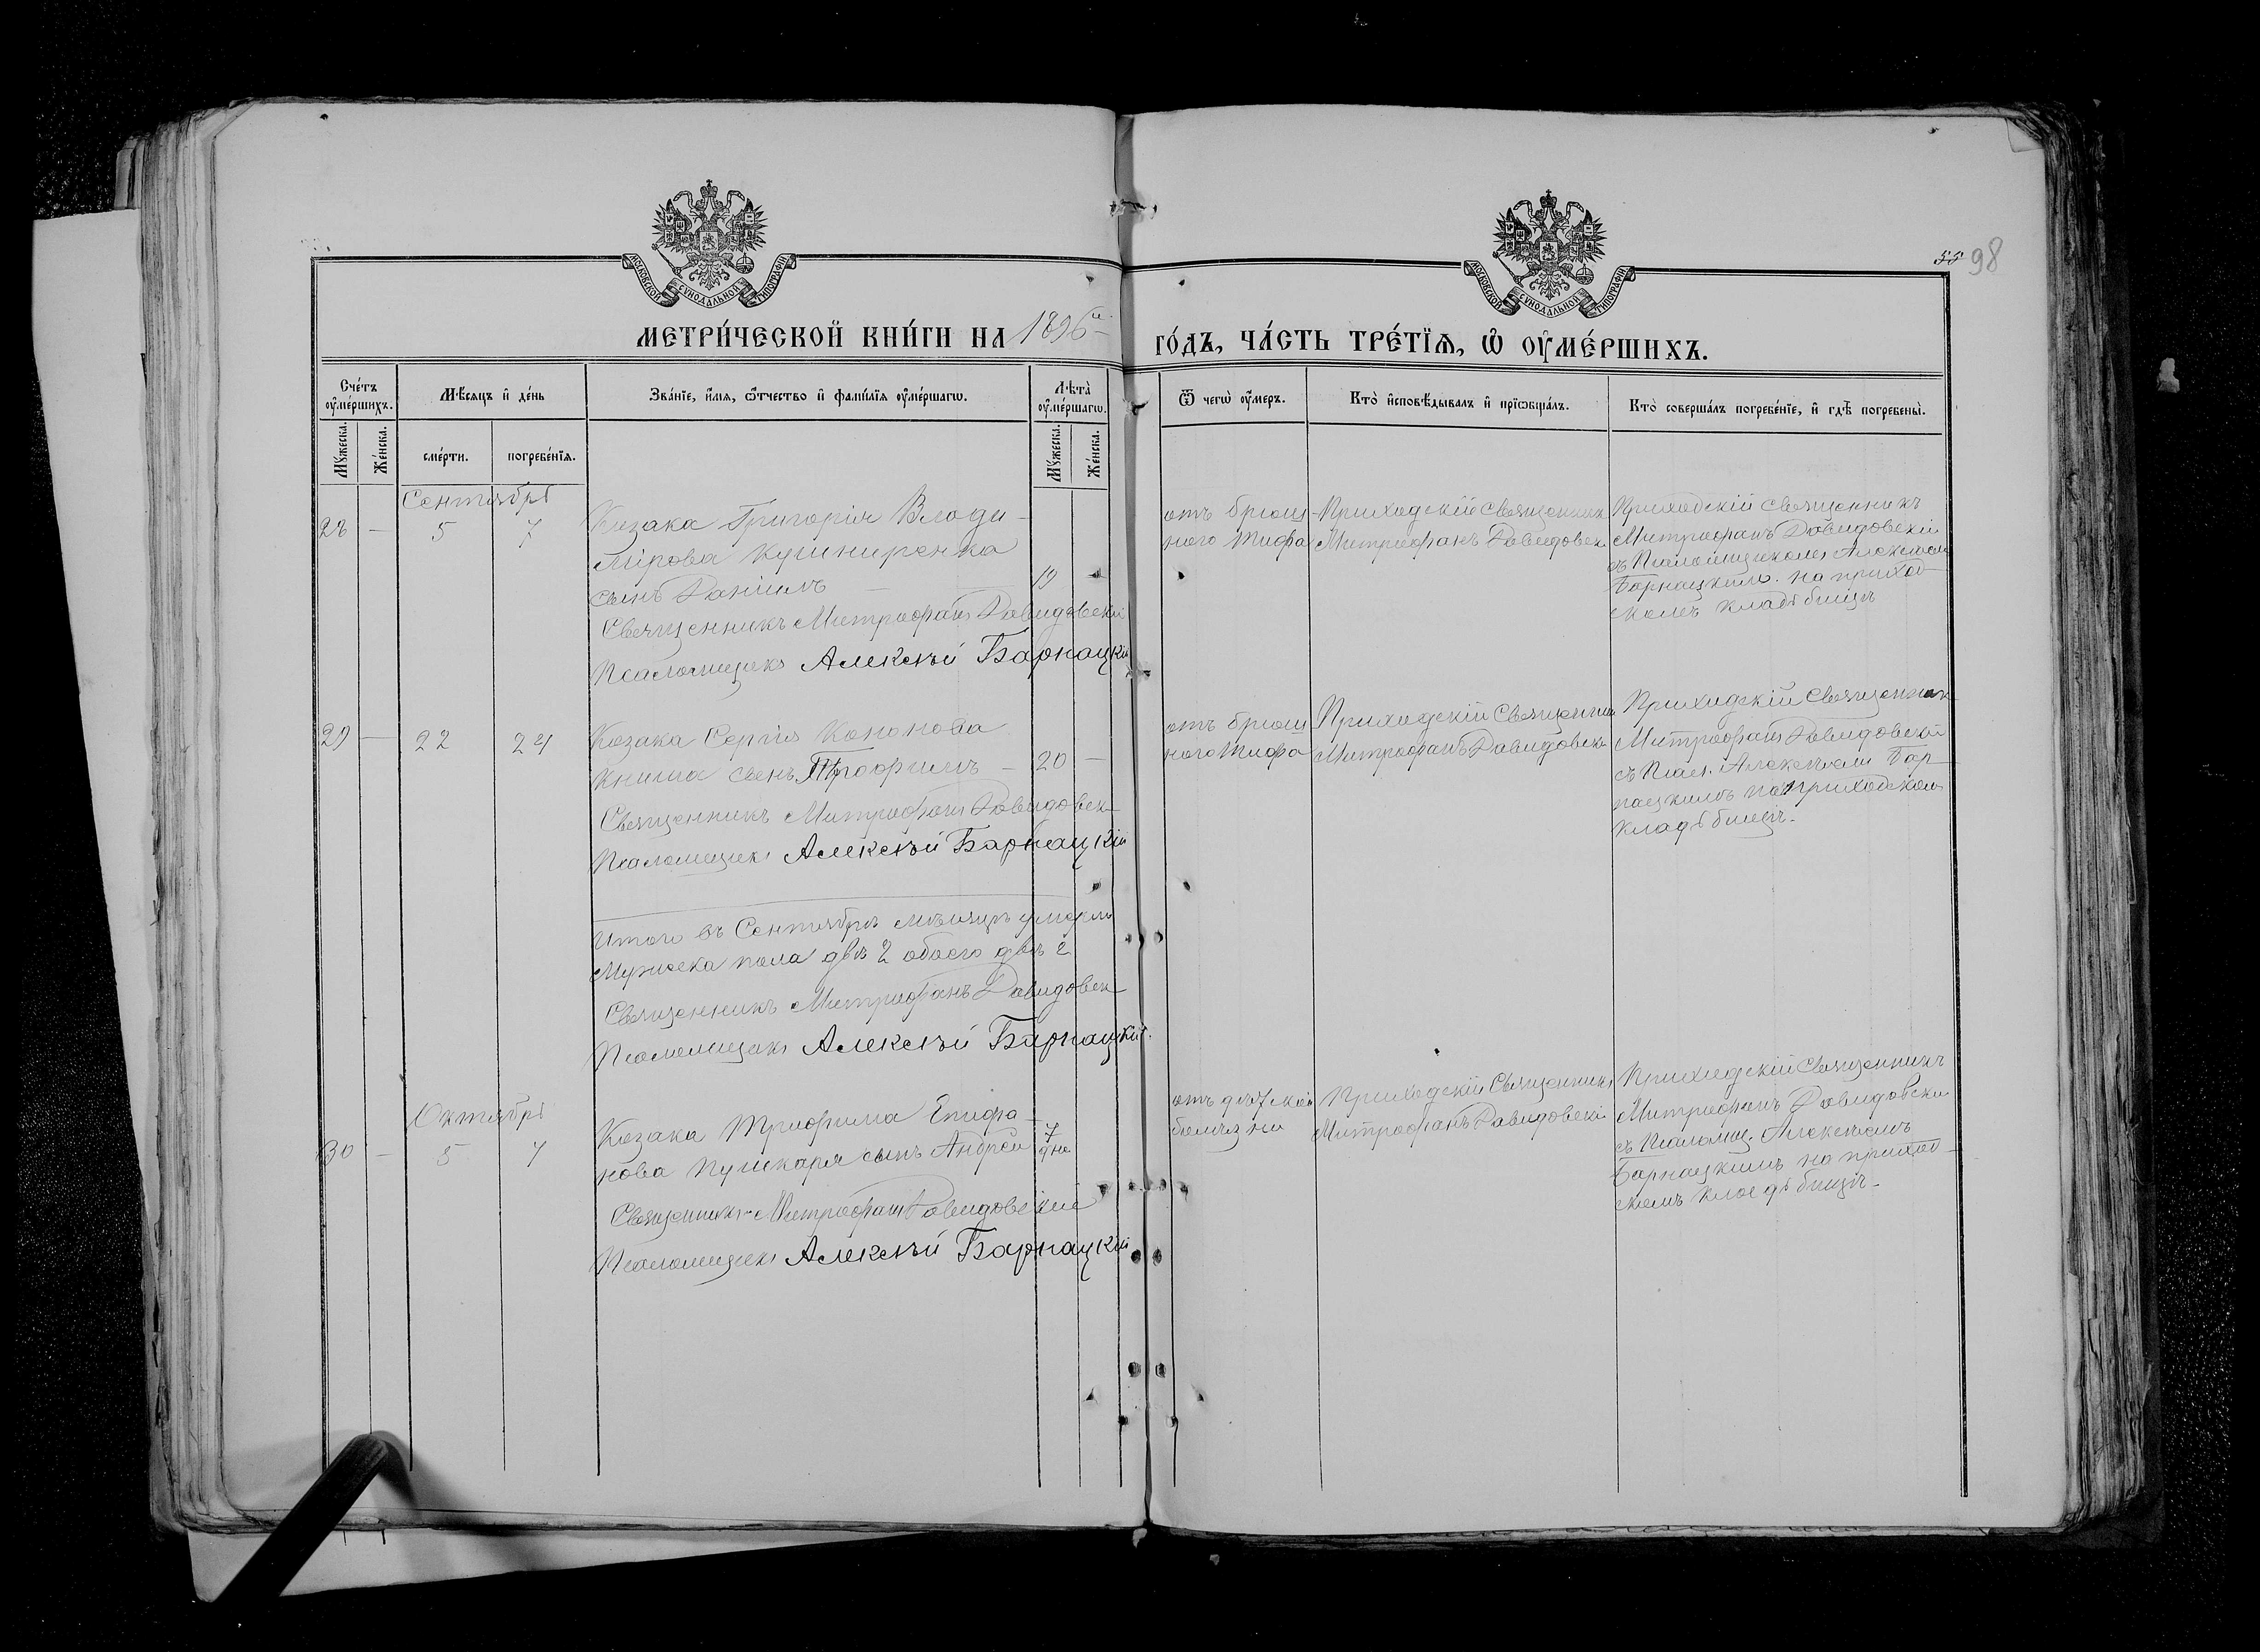 МОСКОВСКОЙ СѴНОДАЛЬНОЙ ТИПОГРАФІИ
МОСКОВСКОЙ СѴНОДАЛЬНОЙ ТИПОГРАФІИ
55 98
МЕТРИ́ЧЕСКОЙ КНИ́ГИ НА 1896й
ГО́ДЪ, ЧА́СТЬ ТРЕ́ТЇѦ, Ѡ ОУМЕ́РШИХЪ.
Сче́тъ оуме́ршихъ.
Мѣ́сяцъ и де́нь
Зва́нїе, и́мя, ѻ́тчество и фами́лїя оуме́ршагѡ.
Лѣ́та оуме́ршагѡ.
Ѿ чегѡ̀ оу́меръ.
Кто̀ исповѣ́дывалъ и прїѡбща́лъ.
Кто̀ соверша́лъ погребе́нїе, и гдѣ̀ погребены̀.
Мꙋ́жеска.
Же́нска.
сме́рти.
погребе́нїя.
Мꙋ́жеска.
Же́нска.
Сентябрь
28 — 5 7
Козака Григорія Влоди-
мірова Кушниренка
сынъ Даніилъ — 19
Священникъ Митрофанъ Давидовскій
Псаломщикъ Алексѣй Барнацкій
отъ брюш-
ного тифа
Приходскій Священникъ
Митрофанъ Давидовск
Приходскій священникъ
Митрофанъ Давидовскій
съ Псаломщикомъ Алексѣем
Барнацкимъ на приход-
скомъ кладбищѣ
29 — 22 24
Козака Сергія Кононова
Книша сынъ Трофимъ — 20 —
Священникъ Митрофанъ Давидовск
Псаломщикъ Алексѣй Барнацкій
отъ брюш
ного тифа
Приходскій Священник
Митрофанъ Давидовск
Приходскій Священник
Митрофанъ Давидовскій
съ Псал. Алексѣемъ Бар-
нацкимъ на приходском
кладбищѣ.
Итого въ Сентябрѣ мѣсяцѣ умерло
мужеска пола двѣ 2 обоего двѣ 2
Священникъ Митрофанъ Давидовск
Псаломщикъ Алексѣй Барнацкій.
Октябрь
30 — 5 7
Козака Трифима Епифа-
нова Пушкаря сынъ Андрей 7 дне
Священникъ Митрофанъ Давидовскій
Псаломщикъ Алексѣй Барнацкій
отъ дѣтской
болѣзни
Приходскій Священникъ
Митрофанъ Давидовскій
Приходскій Священникъ
Митрофанъ Давидовски
съ Псаломщ. Алексѣемъ
Барнацкимъ на приход-
скомъ кладбищѣ.